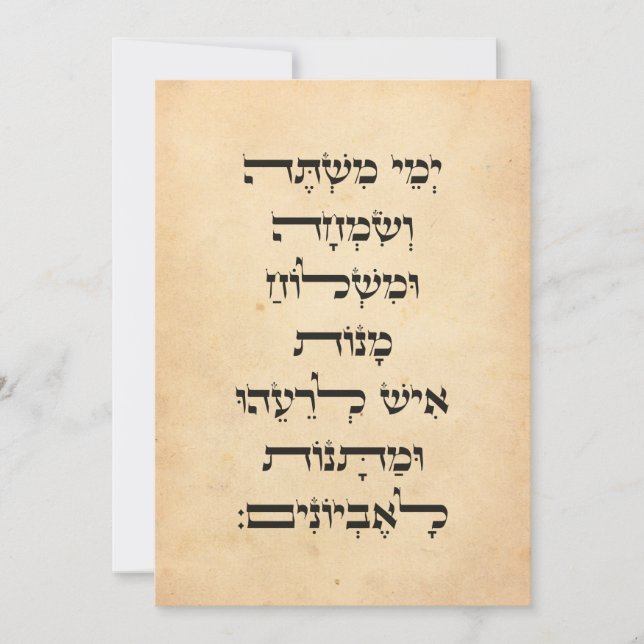 יְמֵי מִשְׁתֶּה
וְשִׂמְחָה
וּמִשְׁלוֹחַ
מָנוֹת
אִישׁ לְרֵעֵהוּ
וּמַתָּנוֹת
לָאֶבְיוֹנִים: